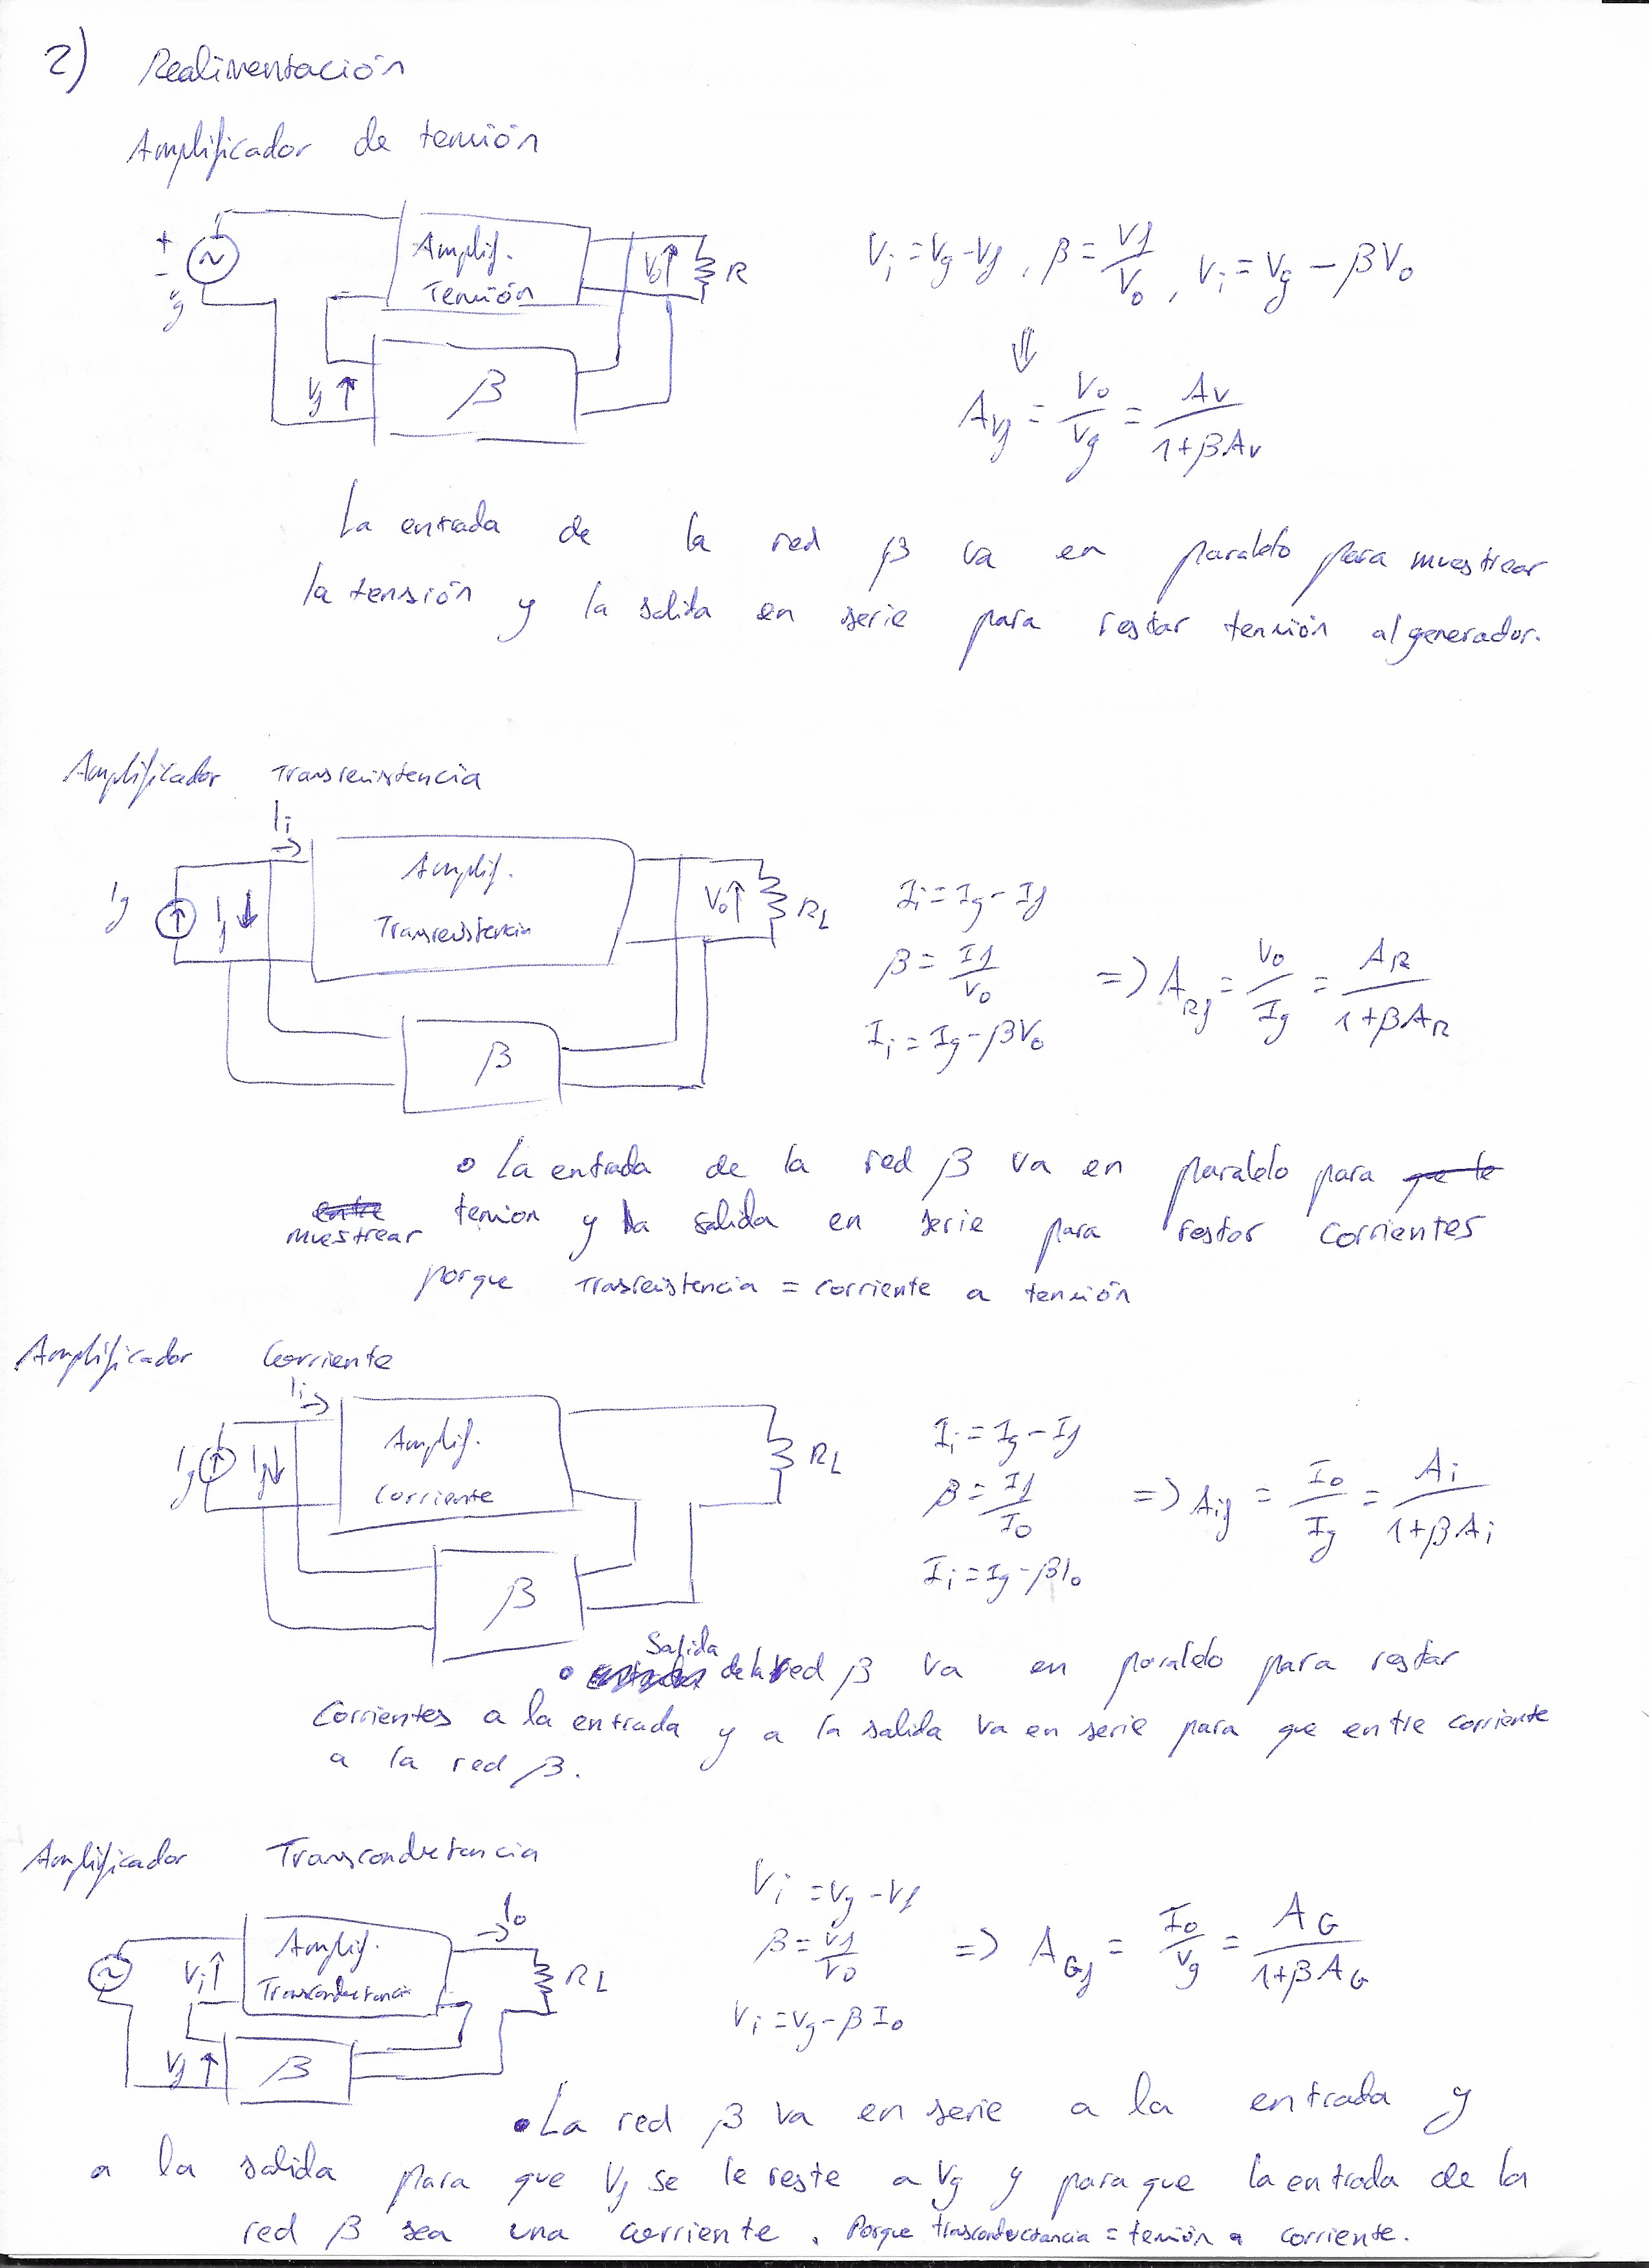 2) Realimentación
Amplificador de tensión
+
-
Vg
Amplif.
Tensión
Vo
R
Vf
β
Vi = Vg - Vf, β = Vf/Vo, Vi = Vg - βVo
⇓
Avf = Vo/Vg = Av/(1+βAv)
La entrada de la red β va en paralelo para muestrear
la tensión y la salida en serie para restar tensión al generador.
Amplificador Transresistencia
Ii
Ig
If
Amplif.
Transresistencia
Vo
RL
β
Ii = Ig - If
β = If/Vo
Ii = Ig - βVo
=> ARf = Vo/Ig = AR/(1+βAR)
o La entrada de la red β va en paralelo para que le
entre
muestrear tension y la salida en serie para restar corrientes
porque Trasresistencia = corriente a tensión
Amplificador Corriente
Ii
Ig
If
Amplif.
Corriente
RL
β
Ii = Ig - If
β = If/Io
Ii = Ig - βIo
=> Aif = Io/Ig = Ai/(1+βAi)
Salida
o de la red β va en paralelo para restar
Corrientes a la entrada y a la salida va en serie para que entre corriente
a la red β.
Amplificador Transconductancia
Io
Vi
Amplif.
Transconductancia
RL
Vf
β
Vi = Vg - Vf
β = Vf/Vo
Vi = Vg - βIo
=> AGf = Io/Vg = AG/(1+βAG)
• La red β va en serie a la entrada y
a la salida para que Vf se le reste a Vg y para que la entrada de la
red β sea una corriente. Porque trasconductancia = tensión a corriente.